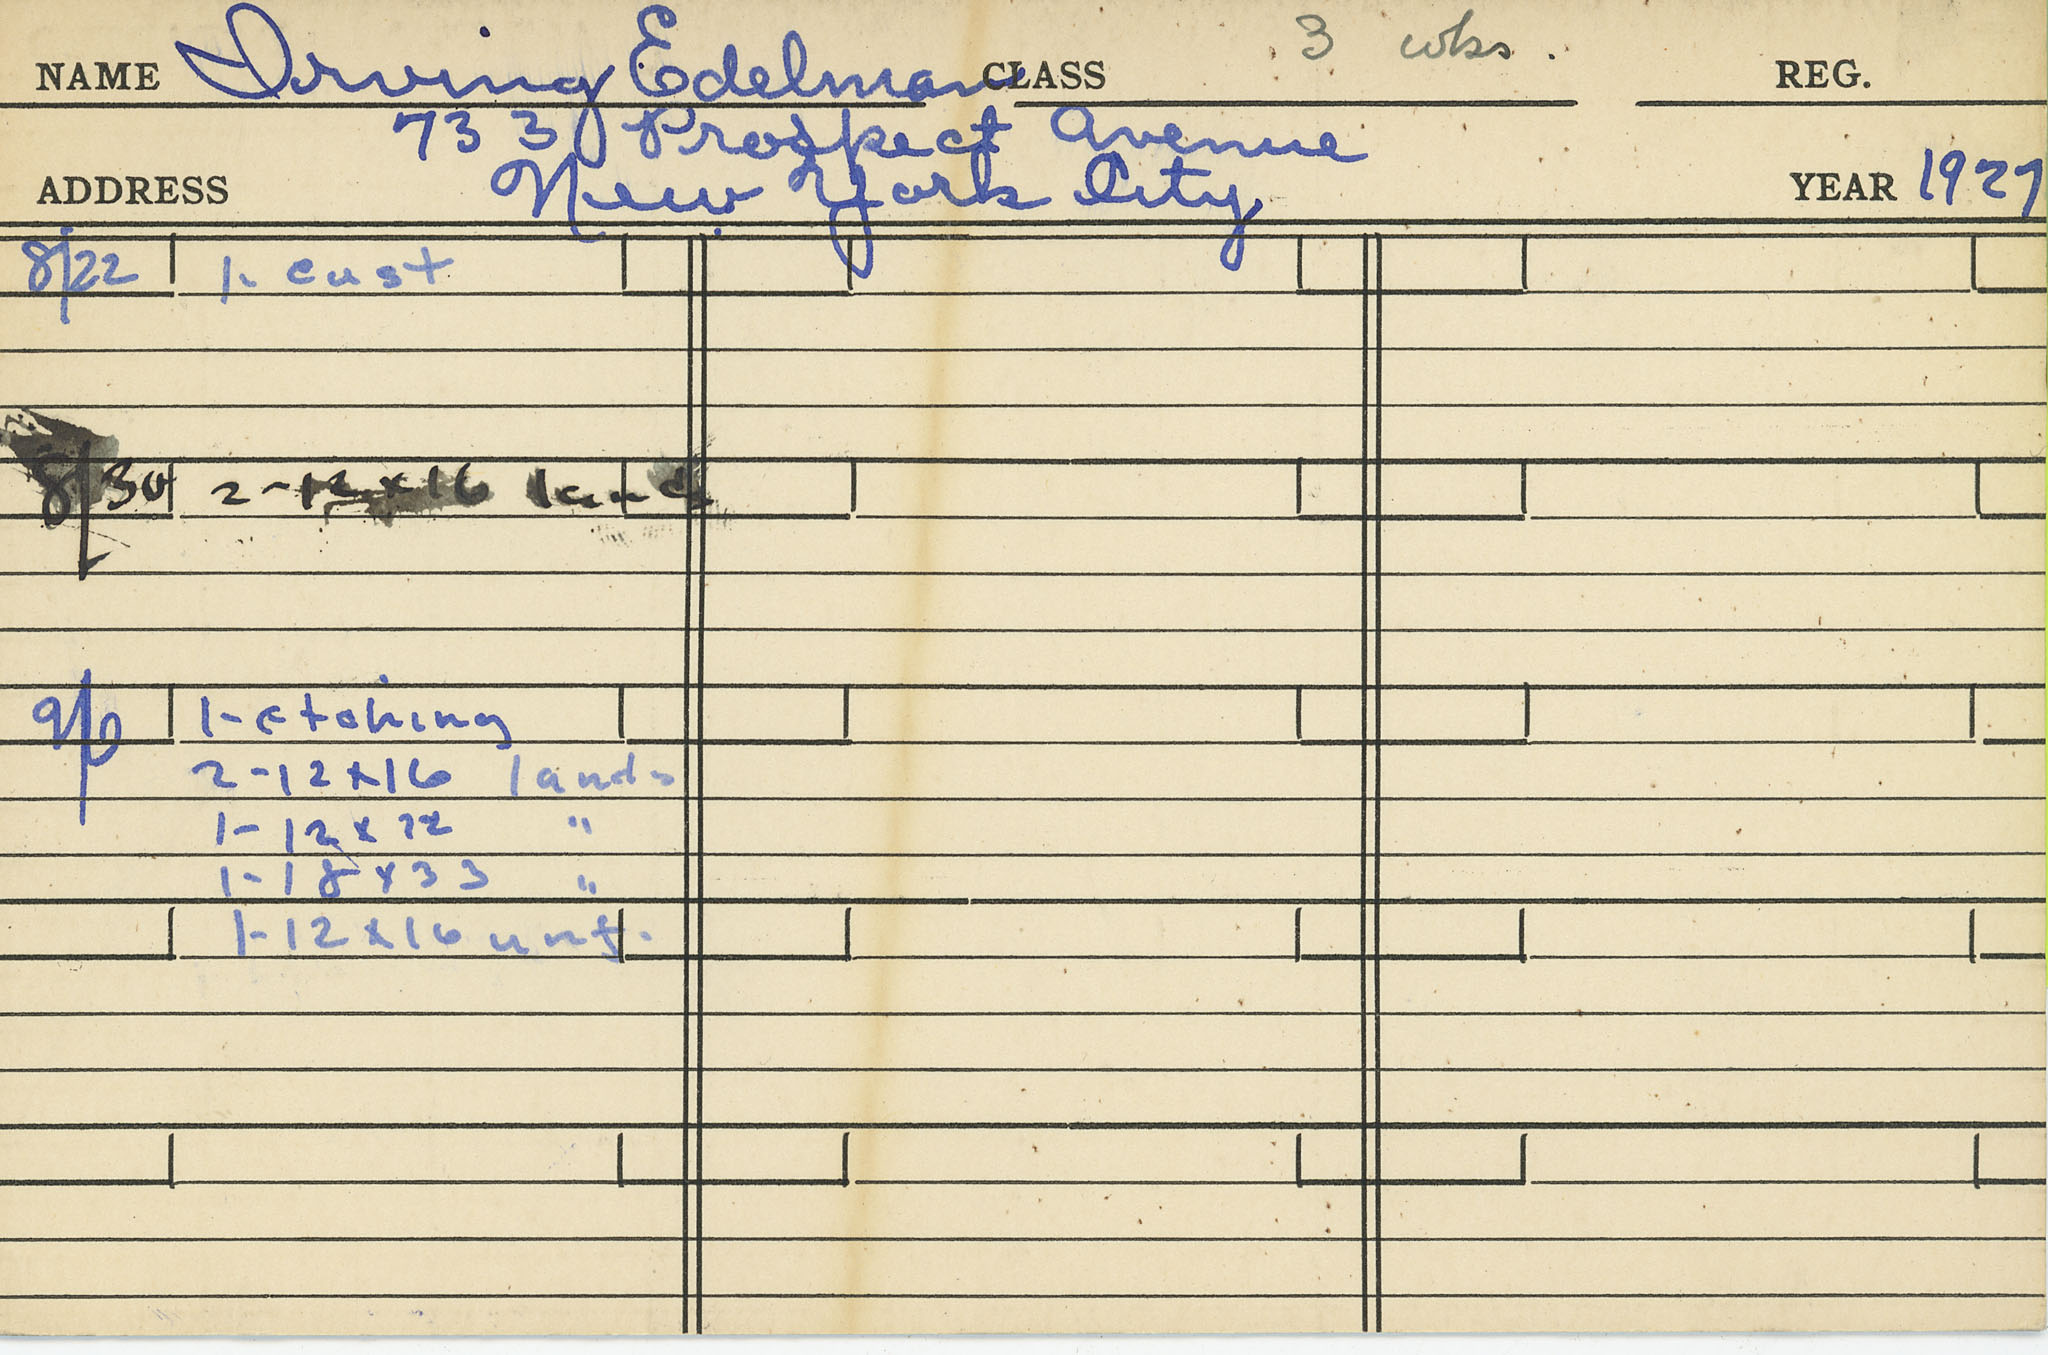 NAME Irving Edelman CLASS 3 wks. REG.
733 Prospect Avenue
ADDRESS New York City YEAR 1927
8/22 1- cust
8/30 2-12x16 lands
9/6 1-etching
2-12x16 lands
1-12x72 "
1-18x33 "
1-12x16 unf.